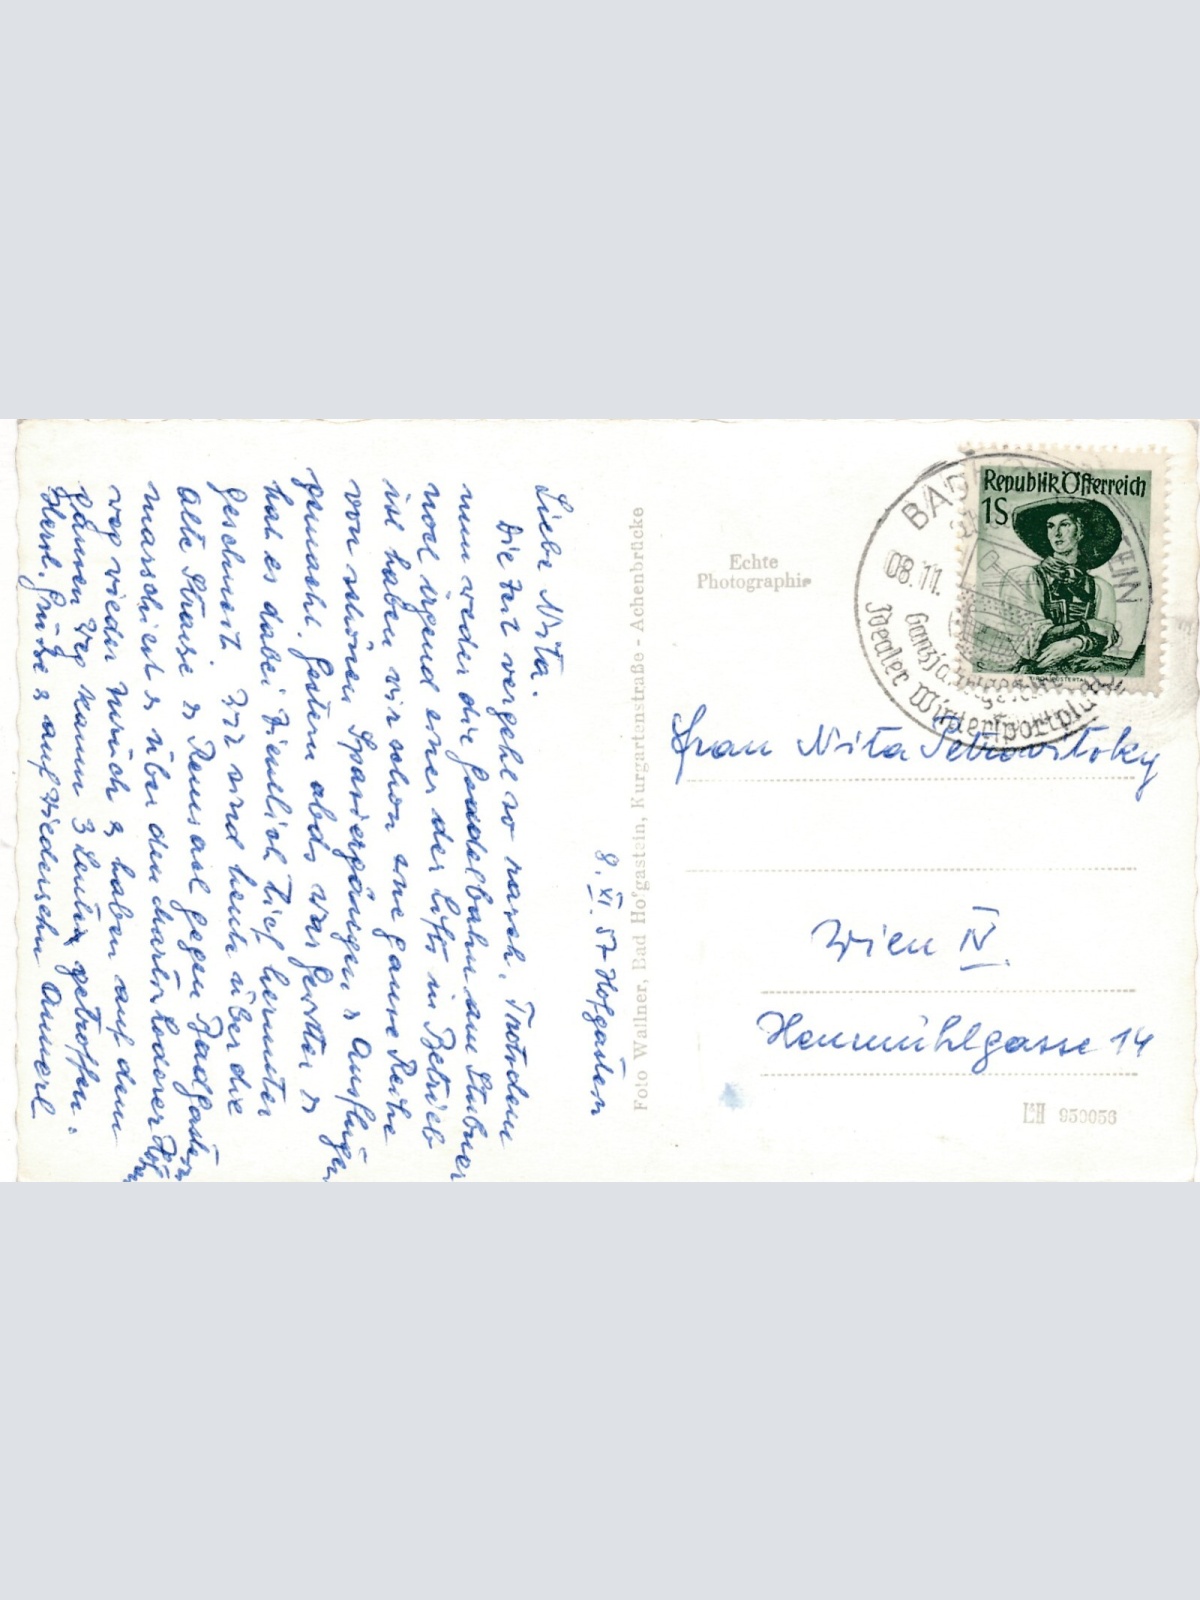 8. XI. 57 Hofgastein
Liebe Nita.
Die Zeit vergeht so rasch. Trotzdem
nun weder die Gondelbahn am Stubner
noch irgend einer der Lifts in Betrieb
ist haben wir schon eine ganze Reihe
von schönen Spaziergängen & Ausflügen
gemacht. Gestern abds war Gewitter &
hat es dabei ziemlich tief herunter
geschneit. Wir sind heute über die
alte Strasse & Remsach gegen Badgastein
marschiert & über den
weg wieder zurück & haben auf dem
ganzen Weg kaum 3 Leute getroffen.
Herzl. Grüsse & auf Wiedersehn Annerl
Foto Wallner, Bad Hofgastein, Kurgartenstraße - Achenbrücke
Echte
Photographie
Republik Österreich
1S
BAD
08.11.
Idealer Wintersportplatz
Frau Nita Petrowitzky
Wien IV.
Heumühlgasse 14
950056